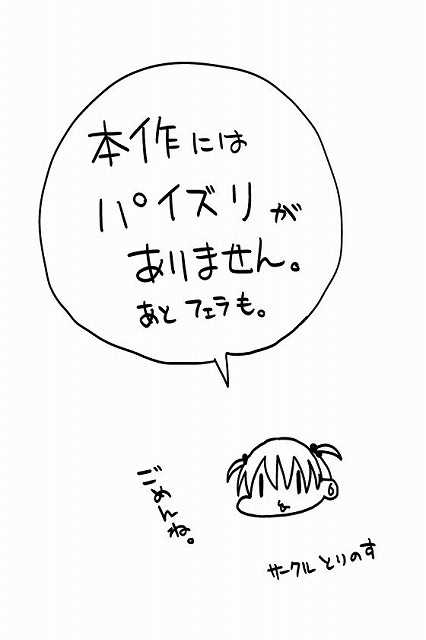 本作には
パイズリが
ありません。
あとフェラも。
ごめんね。
サークルとりのす